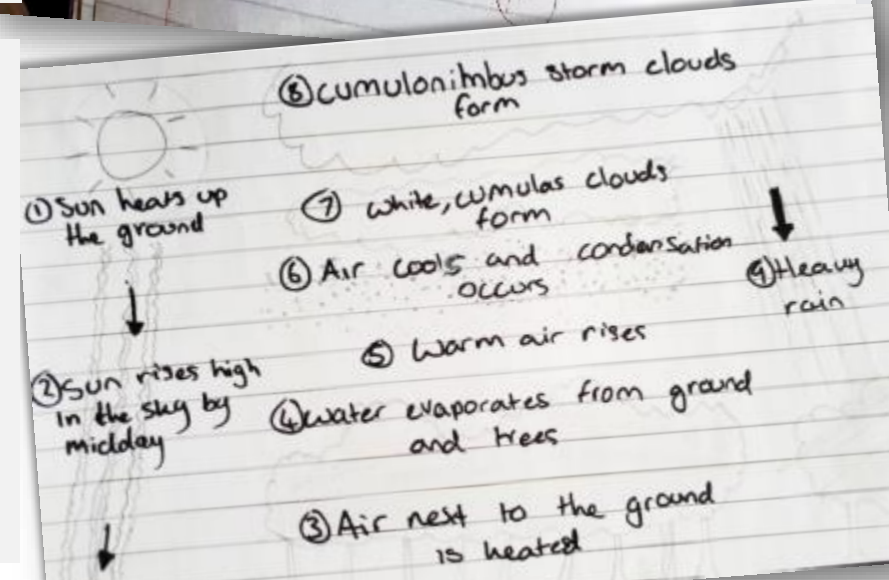 ⑧ cumulonimbus storm clouds
form
① Sun heats up
the ground
⑦ white, cumulas clouds
form
⑥ Air cools and condensation
occurs
⑨ Heavy
rain
⑤ Warm air rises
② Sun rises high
in the sky by
midday
④ water evaporates from ground
and trees
③ Air next to the ground
is heated